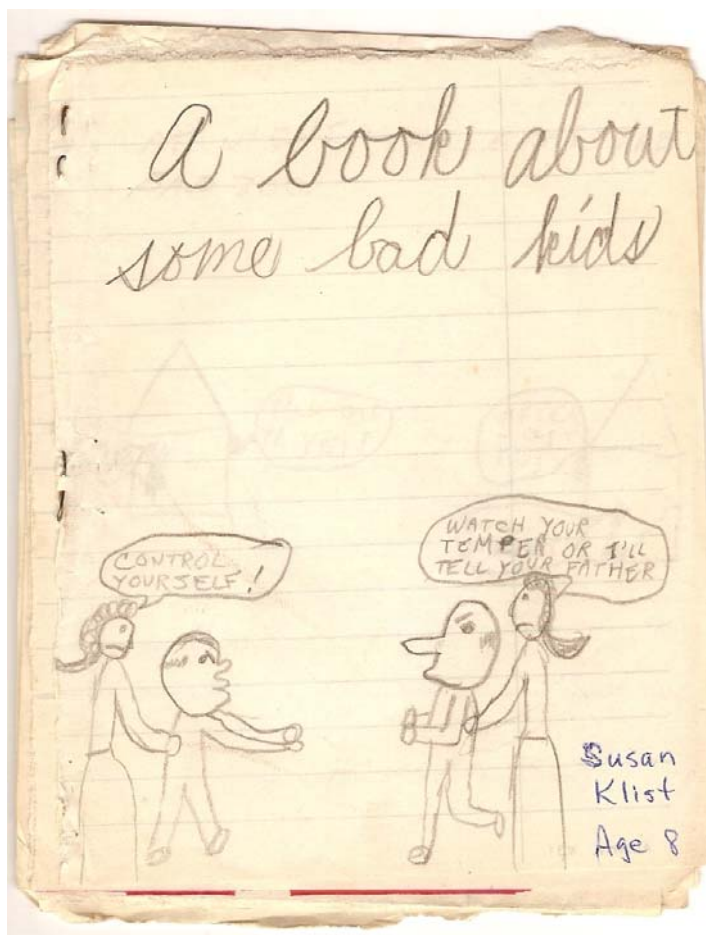 a book about
some bad kids
CONTROL
YOURSELF!
WATCH YOUR
TEMPER OR I'LL
TELL YOUR FATHER
Susan
Klist
Age 8